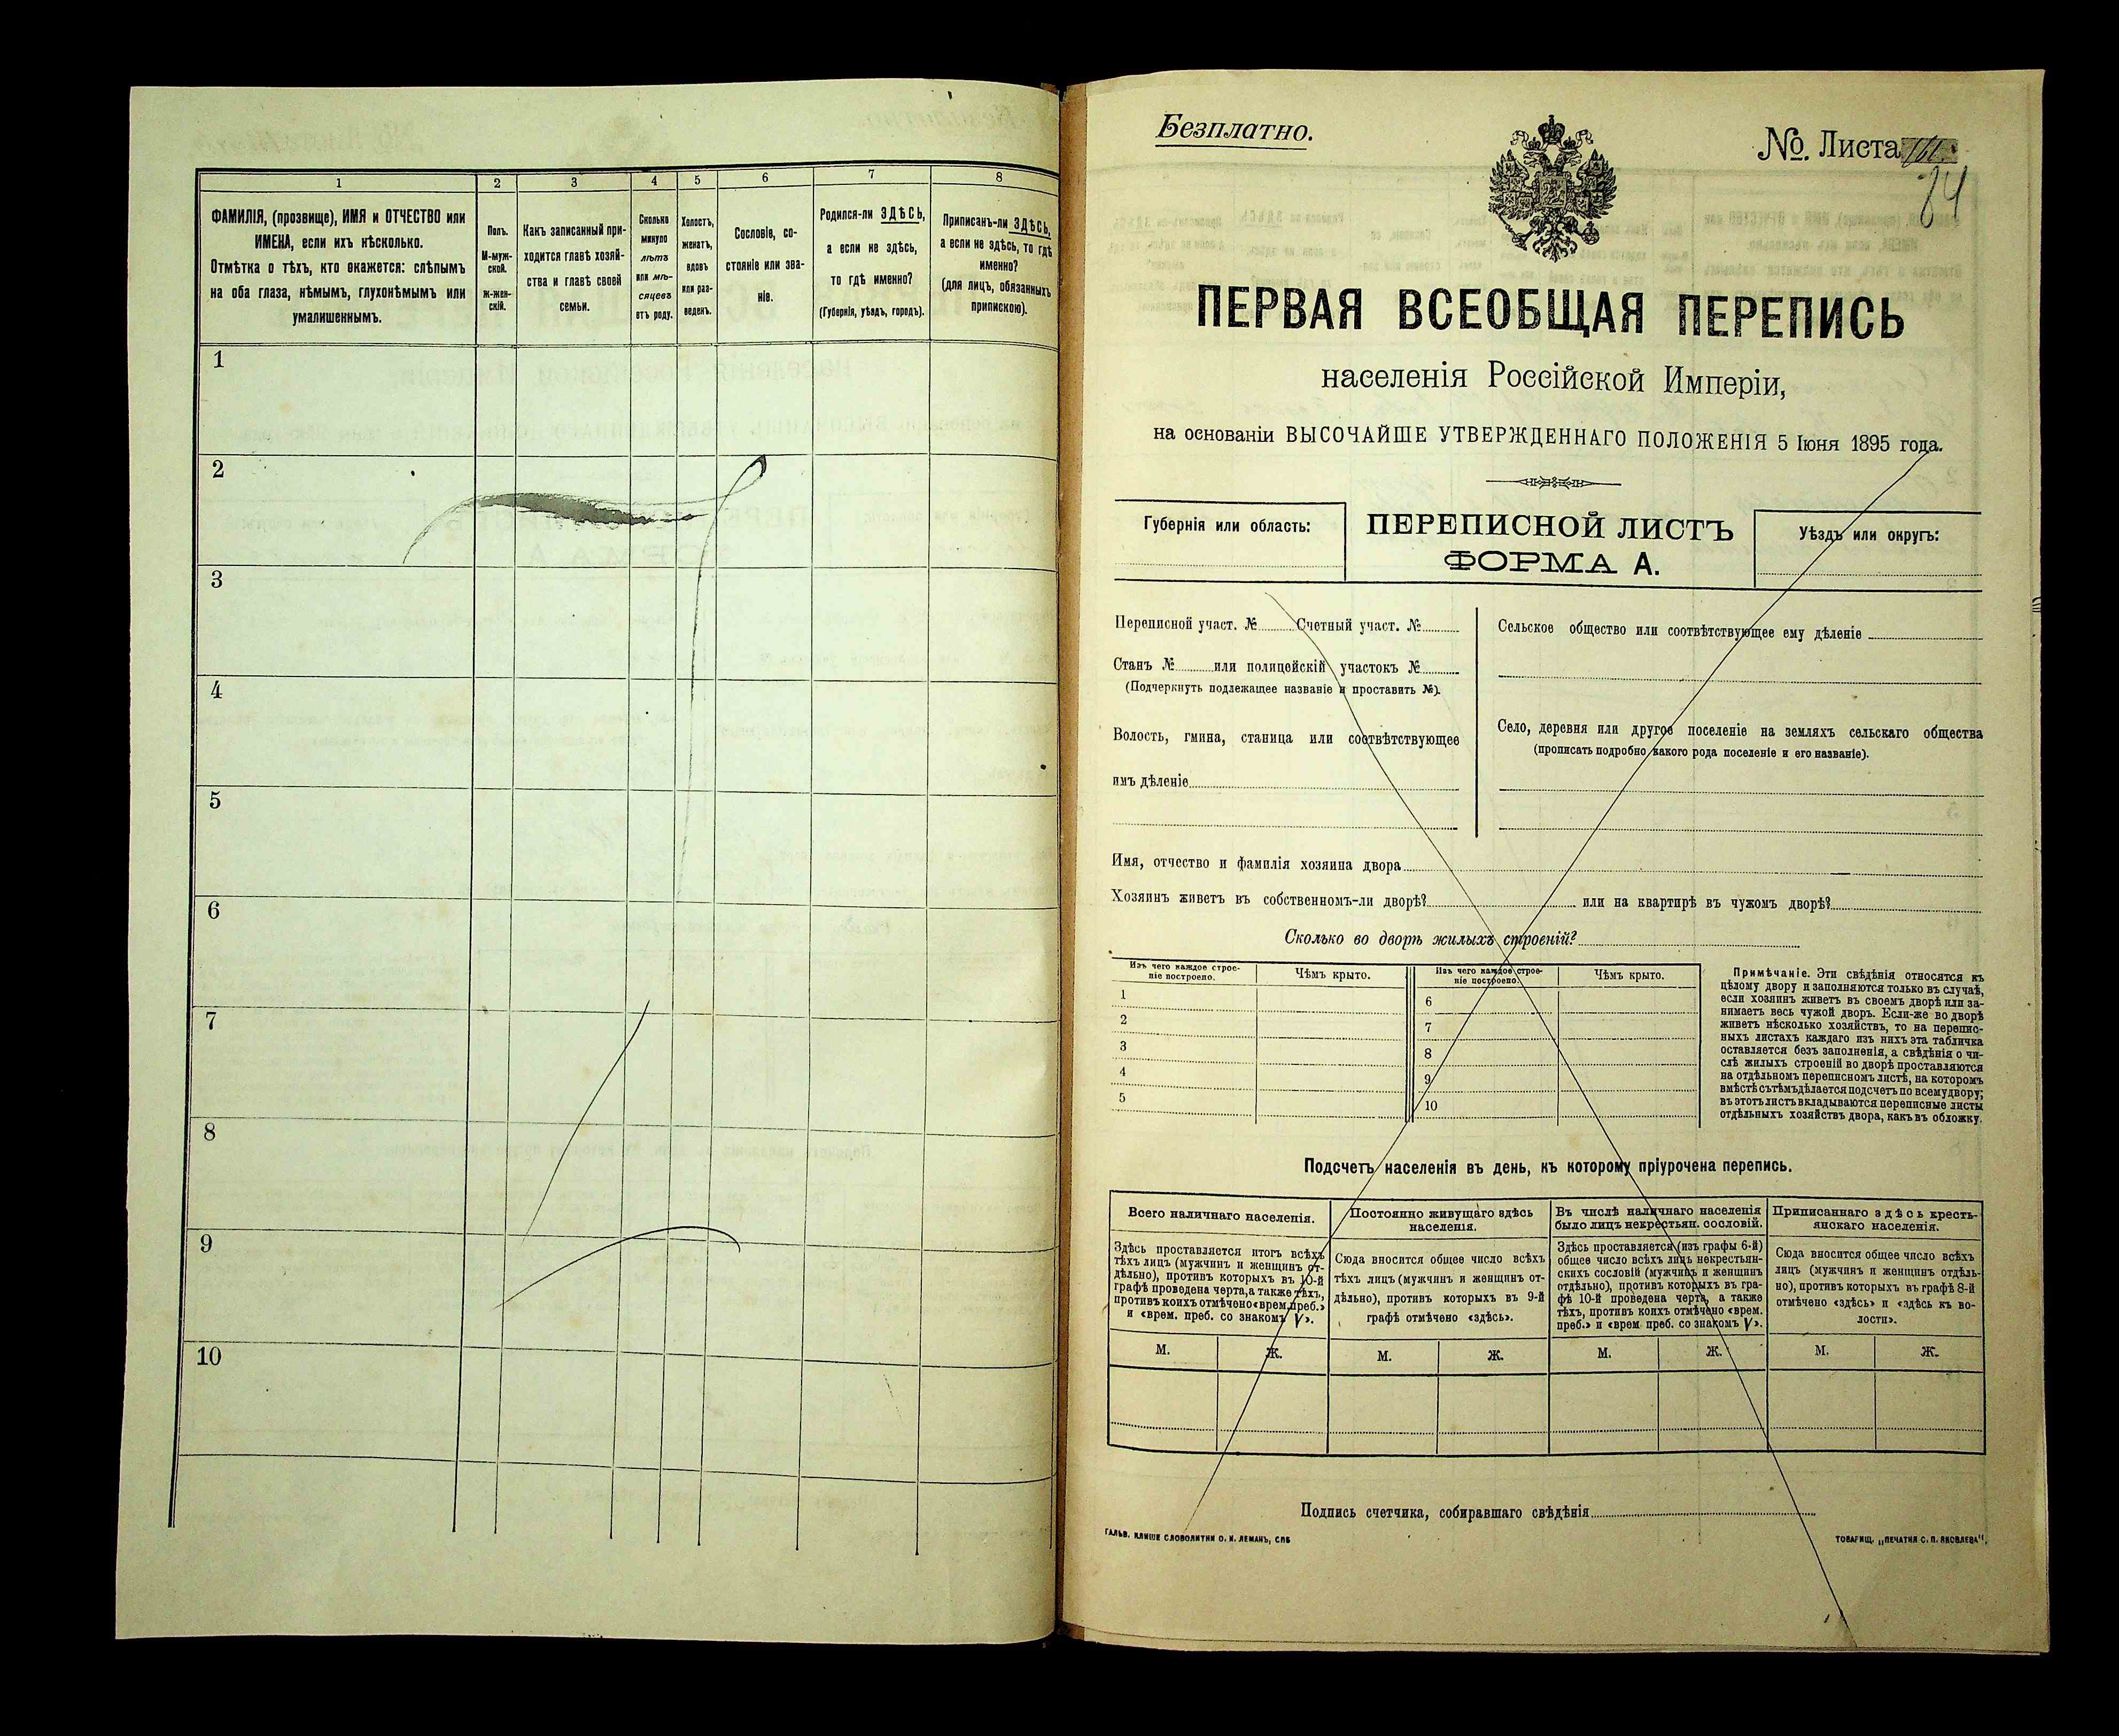 1
2
3
4
5
6
7
8
ФАМИЛІЯ, (прозвище), ИМЯ и ОТЧЕСТВО или
ИМЕНА, если ихъ нѣсколько.
Отмѣтка о тѣхъ, кто окажется: слѣпымъ
на оба глаза, нѣмымъ, глухонѣмымъ или
умалишеннымъ.
Полъ.
М-муж-
ской.
ж-жен-
скій.
Какъ записанный при-
ходится главѣ хозяй-
ства и главѣ своей
семьи.
Сколько
минуло
лѣтъ
или мѣ-
сяцевъ
отъ роду.
Холостъ,
женатъ,
вдовъ
или раз-
веденъ.
Сословіе, со-
стояніе или зва-
ніе.
Родился-ли ЗДѢСЬ,
а если не здѣсь,
то гдѣ именно?
(Губернія, уѣздъ, городъ).
Приписанъ-ли ЗДѢСЬ,
а если не здѣсь, то гдѣ
именно?
(для лицъ, обязанныхъ
припискою).
1
2
3
4
5
6
7
8
9
10
Безплатно.
№. Листа
84
ПЕРВАЯ ВСЕОБЩАЯ ПЕРЕПИСЬ
населенія Россійской Имперіи,
на основаніи ВЫСОЧАЙШЕ УТВЕРЖДЕННАГО ПОЛОЖЕНІЯ 5 Іюня 1895 года.
Губернія или область:
ПЕРЕПИСНОЙ ЛИСТЪ
ФОРМА А.
Уѣздъ или округъ:
Переписной участ. № Счетный участ. №
Станъ № или полицейскій участокъ №
(Подчеркнуть подлежащее названіе и проставить №).
Волость, гмина, станица или соотвѣтствующее
имъ дѣленіе
Сельское общество или соотвѣтствующее ему дѣленіе
Село, деревня или другое поселеніе на земляхъ сельскаго общества
(прописать подробно какого рода поселеніе и его названіе).
Имя, отчество и фамилія хозяина двора
Хозяинъ живетъ въ собственномъ-ли дворѣ? или на квартирѣ въ чужомъ дворѣ?
Сколько во дворѣ жилыхъ строеній?
Изъ чего каждое строе-
ніе построено.
Чѣмъ крыто.
Изъ чего каждое строе-
ніе построено.
Чѣмъ крыто.
1
2
3
4
5
6
7
8
9
10
Примѣчаніе. Эти свѣдѣнія относятся къ
цѣлому двору и заполняются только въ случаѣ,
если хозяинъ живетъ въ своемъ дворѣ или за-
нимаетъ весь чужой дворъ. Если-же во дворѣ
живетъ нѣсколько хозяйствъ, то на перепис-
ныхъ листахъ каждаго изъ нихъ эта табличка
оставляется безъ заполненія, а свѣдѣнія о чи-
слѣ жилыхъ строеній во дворѣ проставляются
на отдѣльномъ переписномъ листѣ, на которомъ
вмѣстѣ съ тѣмъ дѣлается подсчетъ по всему двору;
въ этотъ листъ вкладываются переписные листы
отдѣльныхъ хозяйствъ двора, какъ въ обложку.
Подсчетъ населенія въ день, къ которому пріурочена перепись.
Всего наличнаго населенія.
Здѣсь проставляется итогъ всѣхъ
тѣхъ лицъ (мужчинъ и женщинъ от-
дѣльно), противъ которыхъ въ 10-й
графѣ проведена черта, а также тѣхъ,
противъ коихъ отмѣчено «врем. преб.»
и «врем. преб. со знакомъ V».
Постоянно живущаго здѣсь
населенія.
Сюда вносится общее число всѣхъ
тѣхъ лицъ (мужчинъ и женщинъ от-
дѣльно), противъ которыхъ въ 9-й
графѣ отмѣчено «здѣсь».
Въ числѣ наличнаго населенія
было лицъ некрестьян. сословій.
Здѣсь проставляется (изъ графы 6-й)
общее число всѣхъ лицъ некрестьян-
скихъ сословій (мужчинъ и женщинъ
отдѣльно), противъ которыхъ въ гра-
фѣ 10-й проведена черта, а также
тѣхъ, противъ коихъ отмѣчено «врем.
преб.» и «врем преб. со знакомъ V».
Приписаннаго здѣсь кресть-
янскаго населенія.
Сюда вносится общее число всѣхъ
лицъ (мужчинъ и женщинъ отдѣль-
но), противъ которыхъ въ графѣ 8-й
отмѣчено «здѣсь» и «здѣсь къ во-
лости».
М.
Ж.
М.
Ж.
М.
Ж.
М.
Ж.
Подпись счетчика, собиравшаго свѣдѣнія
ГАЛЬВ. КЛИШЕ СЛОВОЛИТНИ О. И. ЛЕМАНЪ, СПБ
ТОВАРИЩ. „ПЕЧАТНЯ С. П. ЯКОВЛЕВА“.